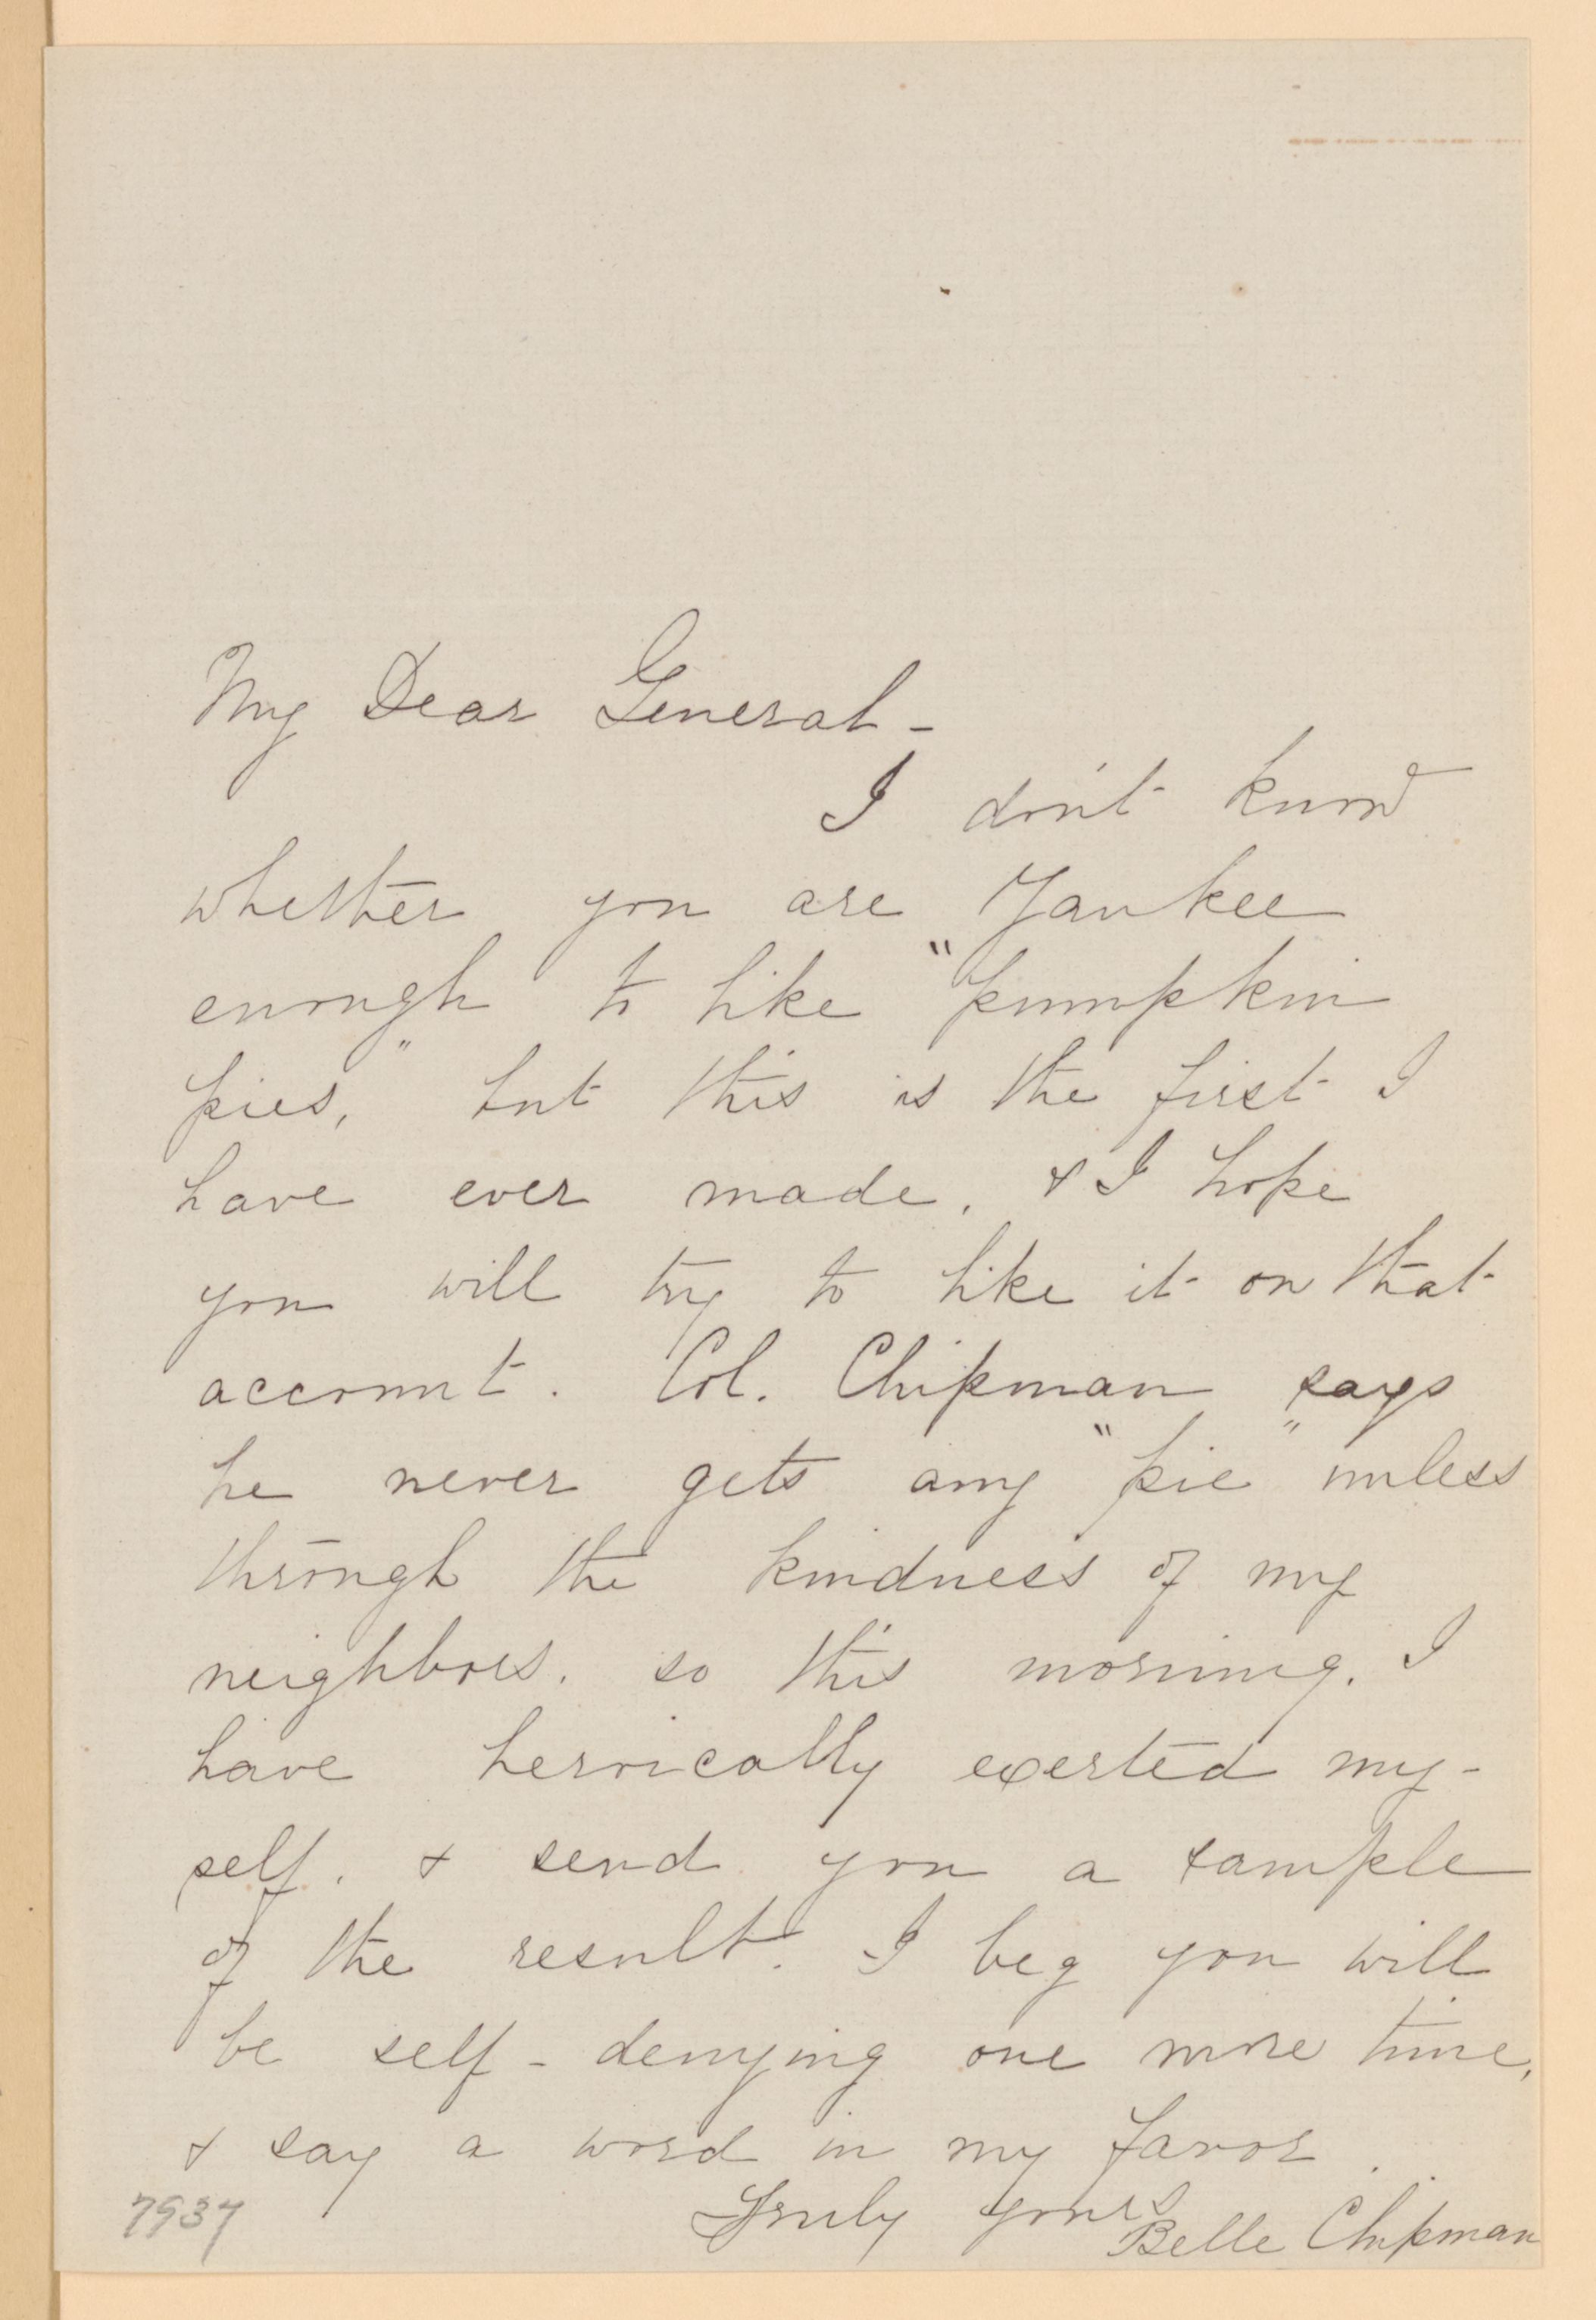 My Dear General -
I don't know
whether you are Yankee
enough to like "pumpkin
pies," but this is the first I
have ever made, & I hope
you will try to like it on that
account. Col. Chipman says
he never gets any "pie" unless
through the kindness of my
neighbors. so this morning. I
have heroically exerted my-
self. & send you a sample
of the result. I beg you will
be self-denying one more time,
& say a word in my favor.
Truly yours
Belle Chipman
7937